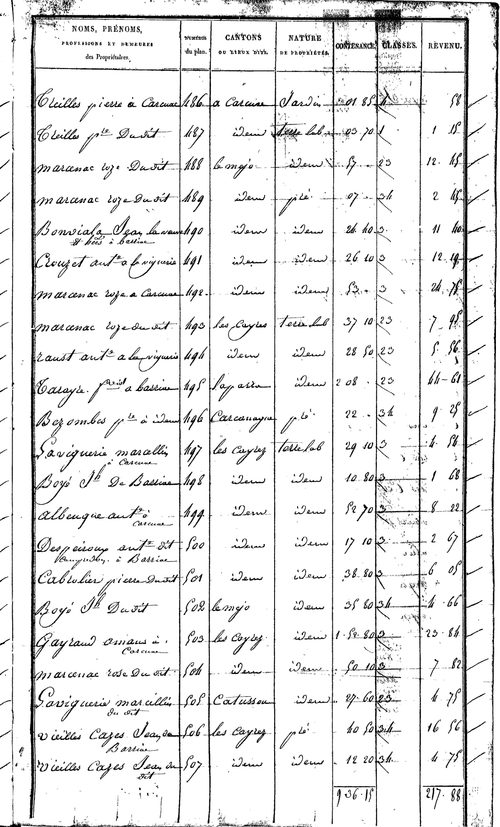 NOMS, PRÉNOMS, PROFESSIONS ET DEMEURES des Propriétaires. NUMÉROS du plan. CANTONS OU LIEUX DITS. NATURE DE PROPRIÉTÉS. CONTENANCE. CLASSES. REVENU.
Treilles pierre à Carcune 486 a Carcune Jardin 01 85 4 58
Treilles pre Dudit 487 idem terre lab 03 70 1 1 15
marcenac roze Dudit 488 le mejo idem 57 . 23 12 45
marcenac roze Dudit 489 idem pré 07 . 34 2 45
Bonviala Jean 490 idem idem 24 40 3 11 40
à barrine
Crouzet ante a la viguerie 491 idem idem 26 10 3 12
marcenac roze a Carcune 492 idem idem 53 . 3 24 75
marcenac roze du dit 493 les Cayres terre lab 37 10 23 7 95
raust ante a la viguerie 494 idem idem 28 50 23 5 56
Tarayre a barrine 495 laparra idem 2 08 . 23 44 61
Bezombes pre à idem 496 Carcanague pré 22 . 34 9 25
Laviguerie marcellin 497 les Cayrez terre lab 29 10 3 4 54
à Carcune
Boyé Jh De Barrine 498 idem idem 10 80 3 1 68
albenque ante à 499 idem idem 52 70 3 8 22
Carcune
Despeiroux ante dit 500 idem idem 17 10 3 2 67
à Barrine
Cabrolier pierre Dudit 501 idem idem 38 80 3 6 05
Boyé Jh Du dit 502 le mejo idem 35 80 34 4 66
Gayraud amans à 503 les Cayrez idem 1 52 80 3 23 84
Carcune
marcenac rose Du dit 504 idem idem 50 10 3 7 82
Laviguerie marcellin 505 Catusson idem 27 60 23 4 75
du dit
vieilles Cazes Jean de 506 les Cayrez pré 40 50 34 16 56
Barrine
vieilles Cazes Jean du 507 idem idem 12 20 34 4 75
dit
9 36 15 217 88